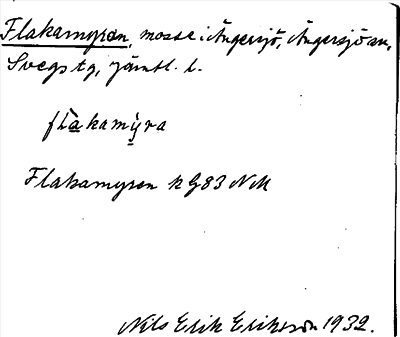 Flakamyran, mosse i Ängersjö, Ängersjö sn,
Svegs tg, Jämtl. l.
flàkamỳra
Flakamyren k G83 NM
Nils Erik Eriksson 1932.